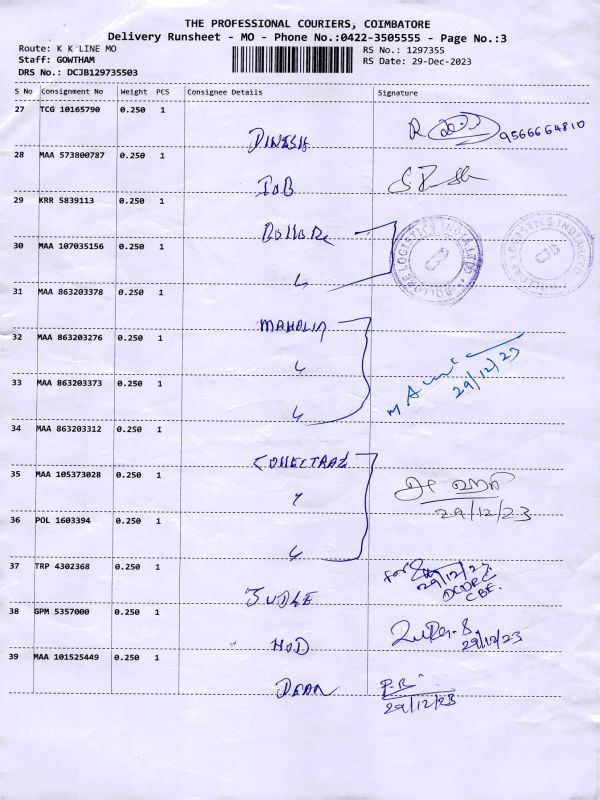 THE PROFESSIONAL COURIERS, COIMBATORE
Delivery Runsheet - MO - Phone No.:0422-3505555 - Page No.:3
Route: K K LINE MO
RS No.: 1297355
Staff: GOWTHAM
RS Date: 29-Dec-2023
DRS No.: DCJB129735503
S No Consignment No Weight PCS Consignee Details Signature
27 TCG 10165790 0.250 1
DINESH 9566664810
28 MAA 573800787 0.250 1
IOB
29 KRR 5839113 0.250 1
30 MAA 107035156 0.250 1
31 MAA 863203378 0.250 1
32 MAA 863203276 0.250 1
33 MAA 863203373 0.250 1
29/12/23
34 MAA 863203312 0.250 1
35 MAA 105373028 0.250 1
29/12/23
36 POL 1603394 0.250 1
37 TRP 4302368 0.250 1
29/12/23
DCDRC
CBE.
JUDGE
38 GPM 5357000 0.250 1
29/12/23
HOD
39 MAA 101525449 0.250 1
DEAN
P.R
29/12/23